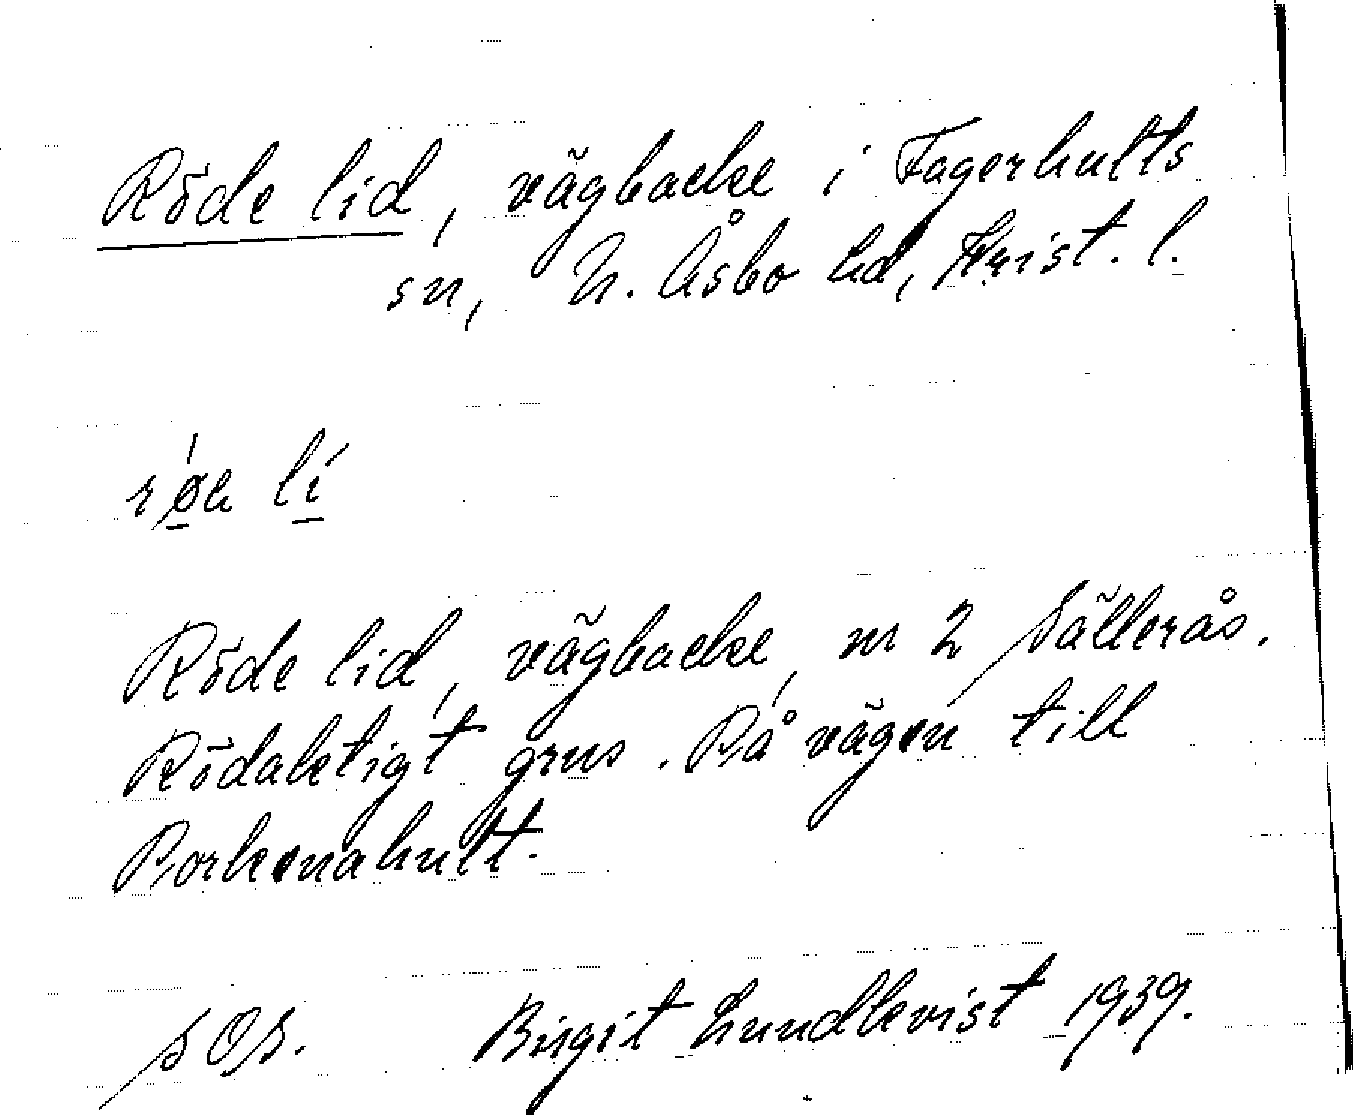 Röde lid, vägbacke i Fagerhults
sn, N. Åsbo hd, Krist. l.
Röde lid, vägbacke, nr 2 Sällerås.
Rödaktigt grus. På vägen till
Porkenahult.
SOS. Birgit Lundkvist 1939.